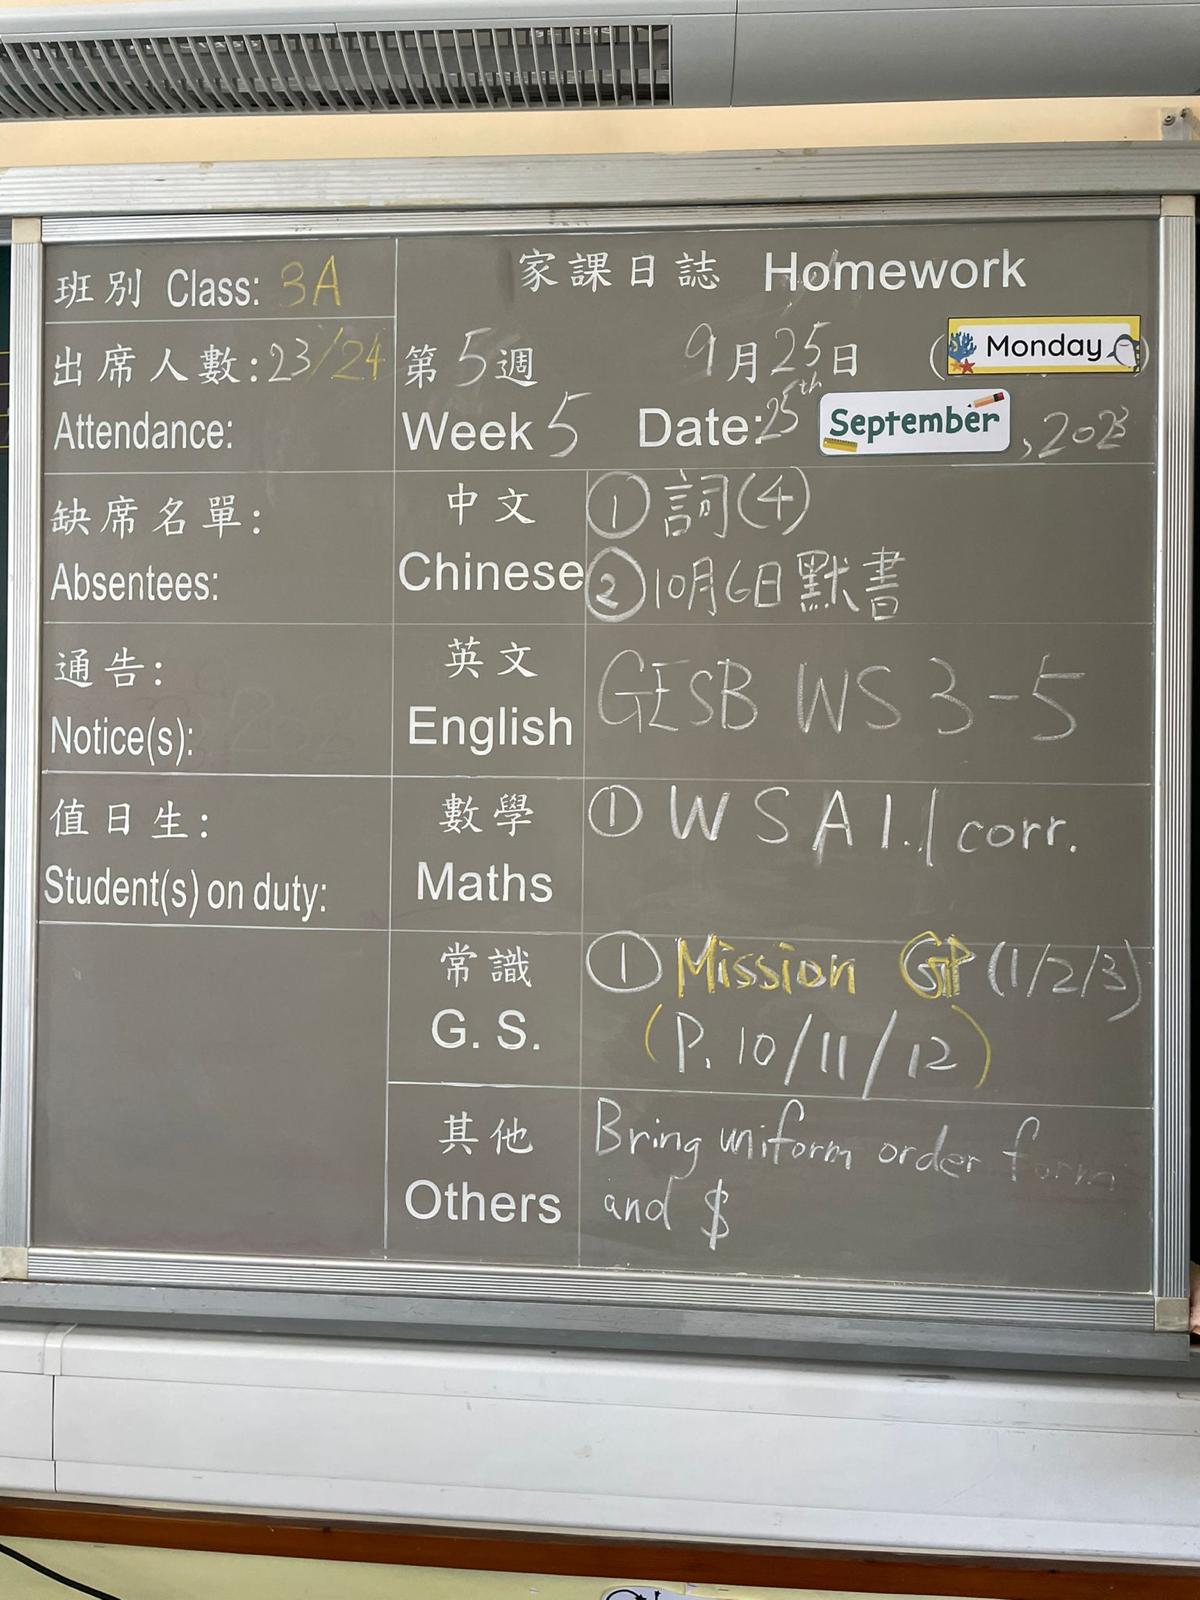 班別 Class: 3A
家課日誌 Homework
出席人數: 23/24
Attendance:
第5週 9月25日 (Monday)
Week 5 Date: 25th September, 2023
缺席名單:
Absentees:
中文
Chinese
① 詞(4)
② 10月6日默書
通告:
Notice(s):
英文
English
GESB WS 3-5
值日生:
Student(s) on duty:
數學
Maths
① WS A1.1 corr.
常識
G. S.
① Mission GP (1/2/3)
(P. 10/11/12)
其他
Others
Bring uniform order form
and $